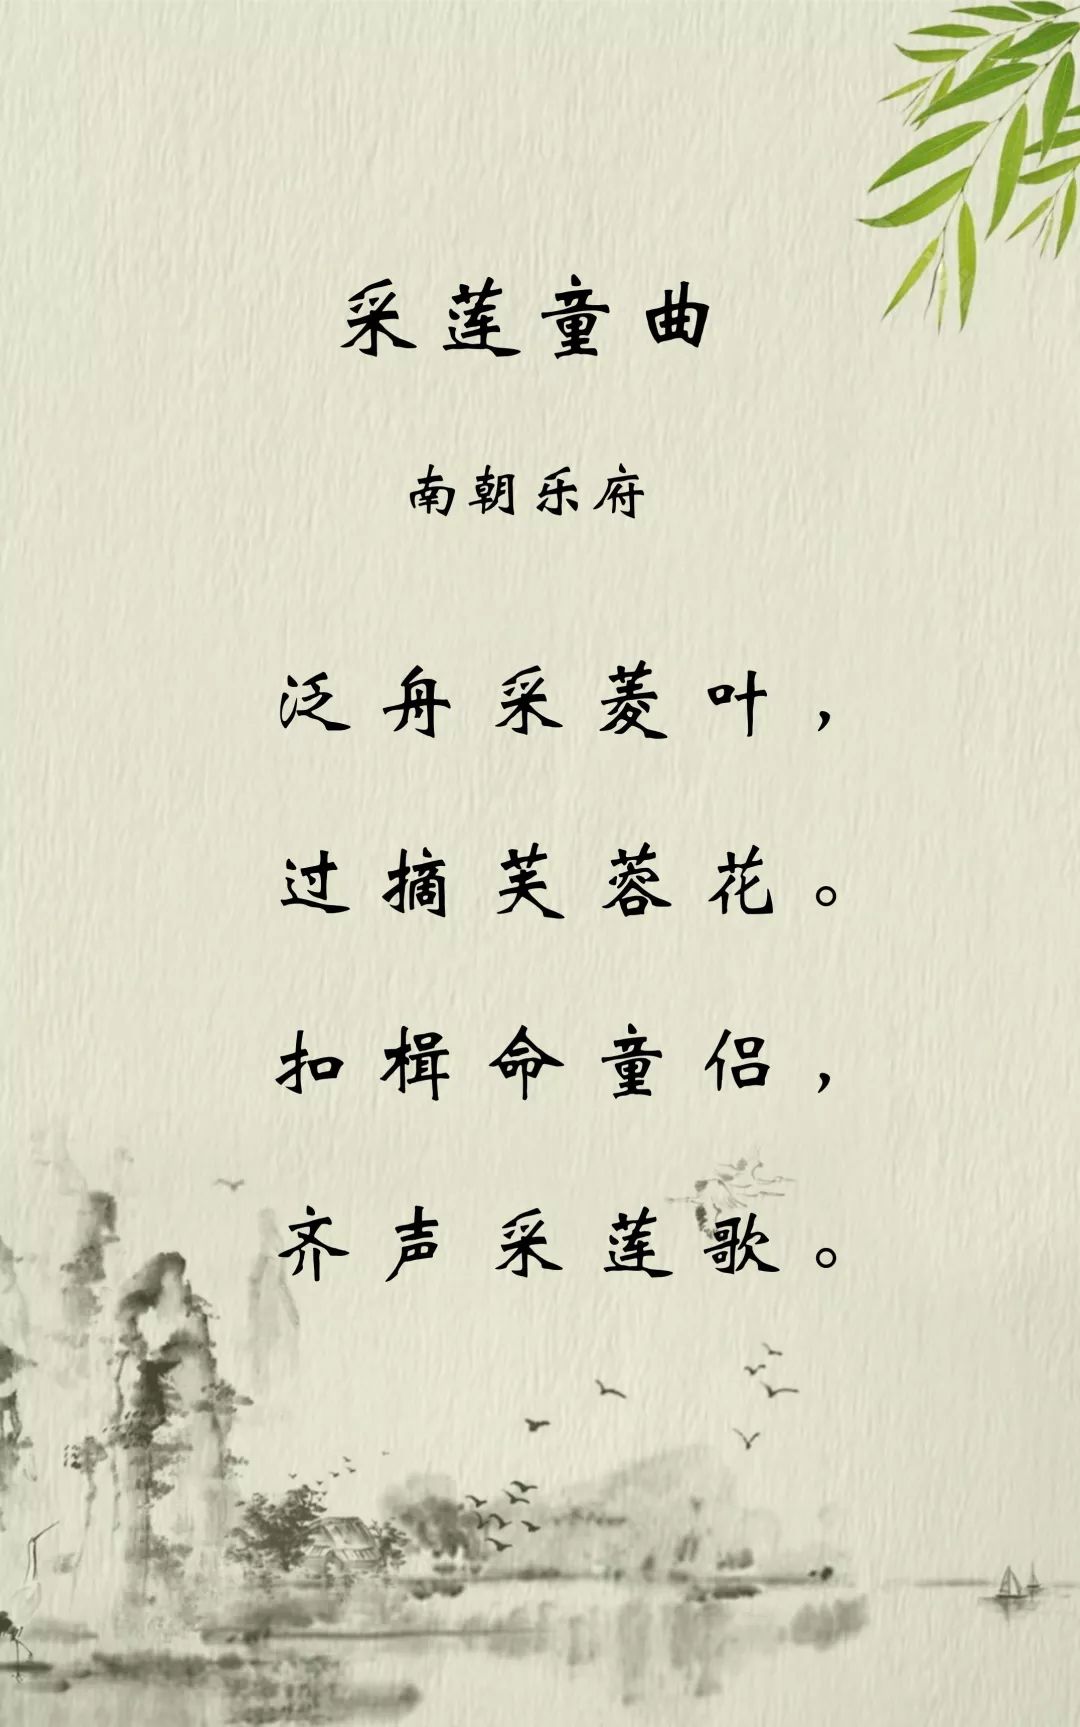 采莲童曲
南朝乐府
泛舟采菱叶，
过摘芙蓉花。
扣楫命童侣，
齐声采莲歌。